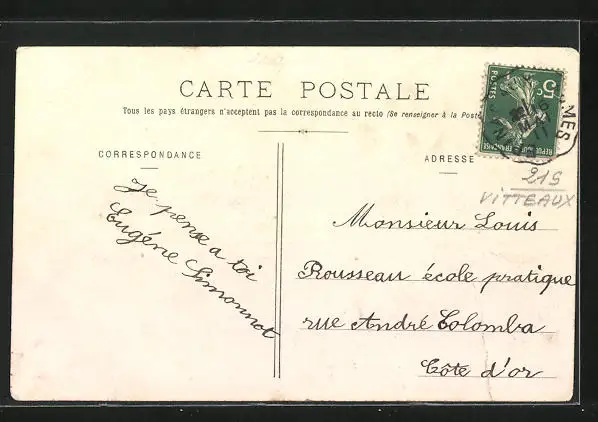 CARTE POSTALE
Tous les pays étrangers n'acceptent pas la correspondance au recto (Se renseigner à la Poste
CORRESPONDANCE
ADRESSE
5c
POSTES
RÉPUBLIQUE FRANÇAISE
MES
219
VITTEAUX
Je pense a toi
Eugénie Simonnot
Monsieur Louis
Rousseau école pratique
rue André Colomba
Côte d'or